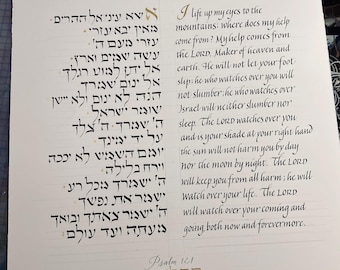 אשא עיני אל ההרים
מאין יבא עזרי
עזרי מעם ה'
עשה שמים וארץ
אל יתן למוט רגלך
אל ינום שמרך
הנה לא ינום ולא יישן
שומר ישראל
ה' שמרך ה' צלך
על יד ימינך
יומם השמש לא יככה
וירח בלילה
ה' ישמרך מכל רע
ישמר את נפשך
ה' ישמר צאתך ובואך
מעתה ועד עולם
I lift up my eyes to the
mountains: where does my help
come from? My help comes from
the LORD, Maker of heaven and
earth. He will not let your foot
slip: he who watches over you will
not slumber; he who watches over
Israel will neither slumber nor
sleep. The LORD watches over you
and is your shade at your right hand
the sun will not harm you by day
nor the moon by night. The LORD
will keep you from all harm; he will
Watch over your life. The LORD
will watch over your coming and
going both now and forevermore.
Psalm 121